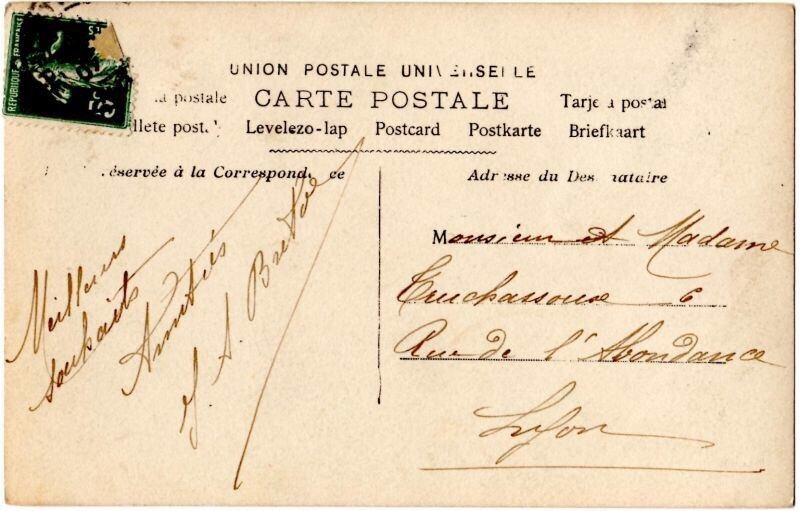 RÉPUBLIQUE FRANÇAISE
5
UNION POSTALE UNIVERSELLE
a postale CARTE POSTALE Tarje a postal
llete post. Levelezo-lap Postcard Postkarte Briefkaart
éservée à la Correspond ce
Adresse du Des nataire
Meilleurs
souhaits
Amitiés
Monsieur et Madame
6
Rue de l'Abondance
Lyon